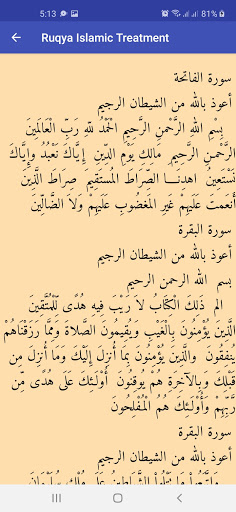 5:13
81%
Ruqya Islamic Treatment
سورة الفاتحة
أعوذ بالله من الشيطان الرجيم
بِسْمِ اللهِ الرَّحْمنِ الرَّحِيمِ الْحَمْدُ للّهِ رَبِّ الْعَالَمِينَ
الرَّحْمنِ الرَّحِيمِ مَالِكِ يَوْمِ الدِّينِ إِيَّاكَ نَعْبُدُ وإِيَّاكَ
نَسْتَعِينُ اهدِنَــــا الصِّرَاطَ المُستَقِيمَ صِرَاطَ الَّذِينَ
أَنعَمتَ عَلَيهِمْ غَيرِ المَغضُوبِ عَلَيهِمْ وَلاَ الضَّالِّينَ
سورة البقرة
أعوذ بالله من الشيطان الرجيم
بسم الله الرحمن الرحيم
الم ذَلِكَ الْكِتَابُ لاَ رَيْبَ فِيهِ هُدًى لِّلْمُتَّقِينَ
الَّذِينَ يُؤْمِنُونَ بِالْغَيْبِ وَيُقِيمُونَ الصَّلاةَ وَمِمَّا رَزَقْنَاهُمْ
يُنفِقُونَ والَّذِينَ يُؤْمِنُونَ بِمَا أُنزِلَ إِلَيْكَ وَمَا أُنزِلَ مِن
قَبْلِكَ وَبِالآخِرَةِ هُمْ يُوقِنُونَ أُوْلَـئِكَ عَلَى هُدًى مِّن
رَّبِّهِمْ وَأُوْلَـئِكَ هُمُ الْمُفْلِحُونَ
سورة البقرة
أعوذ بالله من الشيطان الرجيم